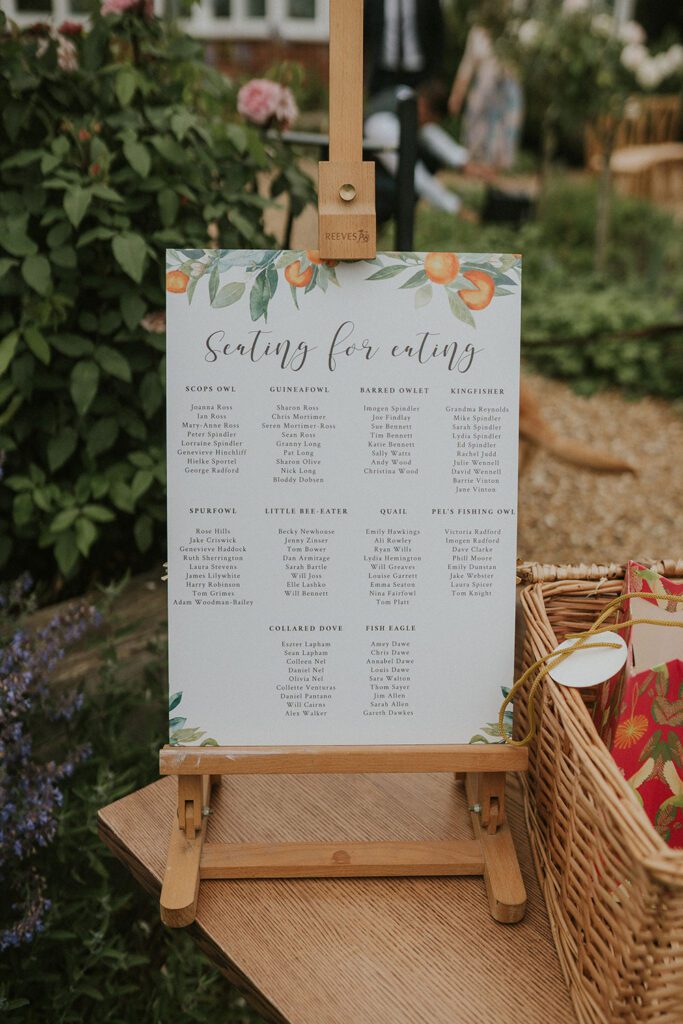 REEVES
Seating for eating
SCOPS OWL
Joanna Ross
Ian Ross
Mary-Anne Ross
Peter Spindler
Lorraine Spindler
Genevieve Hinchliff
Hielke Sportel
George Radford
GUINEAFOWL
Sharon Ross
Chris Mortimer
Seren Mortimer-Ross
Sean Ross
Granny Long
Pat Long
Sharon Olive
Nick Long
Bloddy Dobsen
BARRED OWLET
Imogen Spindler
Joe Findlay
Sue Bennett
Tim Bennett
Katie Bennett
Sally Watts
Andy Wood
Christina Wood
KINGFISHER
Grandma Reynolds
Mike Spindler
Sarah Spindler
Lydia Spindler
Ed Spindler
Rachel Judd
Julie Wennell
David Wennell
Barrie Vinton
Jane Vinton
SPURFOWL
Rose Hills
Jake Criswick
Genevieve Haddock
Ruth Sherrington
Laura Stevens
James Lilywhite
Harry Robinson
Tom Grimes
Adam Woodman-Bailey
LITTLE BEE-EATER
Becky Newhouse
Jenny Zinser
Tom Bower
Dan Armitage
Sarah Bartle
Will Joss
Elle Lashko
Will Bennett
QUAIL
Emily Hawkings
Ali Rowley
Ryan Wills
Lydia Hemington
Will Greaves
Louise Garrett
Emma Seaton
Nina Fairfowl
Tom Platt
PEL'S FISHING OWL
Victoria Radford
Imogen Radford
Dave Clarke
Phill Moore
Emily Dunstan
Jake Webster
Laura Spicer
Tom Knight
COLLARED DOVE
Eszter Lapham
Sean Lapham
Colleen Nel
Daniel Nel
Olivia Nel
Collette Venturas
Daniel Pantano
Will Cairns
Alex Walker
FISH EAGLE
Amey Dawe
Chris Dawe
Annabel Dawe
Louis Dawe
Sara Walton
Thom Sayer
Jim Allen
Sarah Allen
Gareth Dawkes